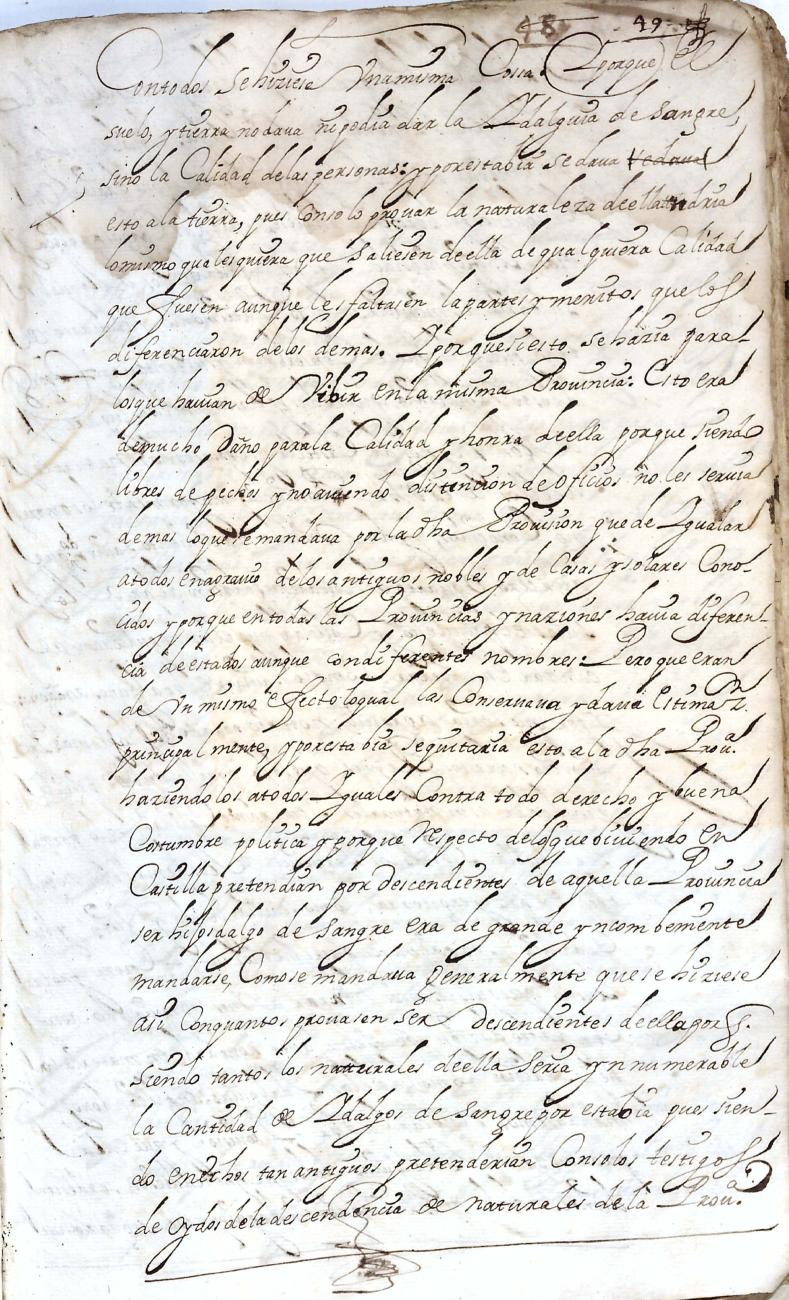 48 49
Con todos se hiziese Una misma Cosa. Yporque el
suelo, y tierra no dava ni podia dar la Ydalguia de sangre,
sino la Calidad de las personas: y por esta bia se dava
esto a la tierra, pues Con solo provar la naturaleza de ella tendria
lo mismo quales quiera que saliesen de ella de qualquiera Calidad
que fuesen aunque les faltasen la partes y meritos que los
diferenciaron de los demas. Yporque si esto se hazia para
los que havian de Vibir en la misma Provincia: Esto era
de mucho Daño para la Calidad y honra de ella porque siendo
libres de pechos y no aviendo distincion de oficios no les servia
de mas lo que se mandava por la dha Provision que de Igualar
a todos en agravio de los antiguos nobles y de Casas y solares Cono-
cidos y porque en todas las Provincias y naziones havia diferen-
cia de estados aunque con diferentes nombres: Pero que eran
de Un mismo efecto lo qual las Conservava y dava Estimaz.on
principalmente, y por esta bia se quitaria esto a la dha Prov.a
haziendolos a todos Yguales Contra todo derecho y buena
Costumbre politica y porque respecto de los que biviendo en
Castilla pretendian por descendientes de aquella Provincia
ser hijosdalgo de sangre era de grande ynconbeniente
mandarse, Como se mandava generalmente que se hiziese
asi Con quantos provasen ser descendientes de ella porq.
siendo tantos los naturales de ella seria ynnumerable
la Cantidad de Ydalgos de sangre por esta bia pues sien-
do en echos tan antiguos pretenderian Con solos testigos
de oydos de la descendencia de naturales de la Prov.a